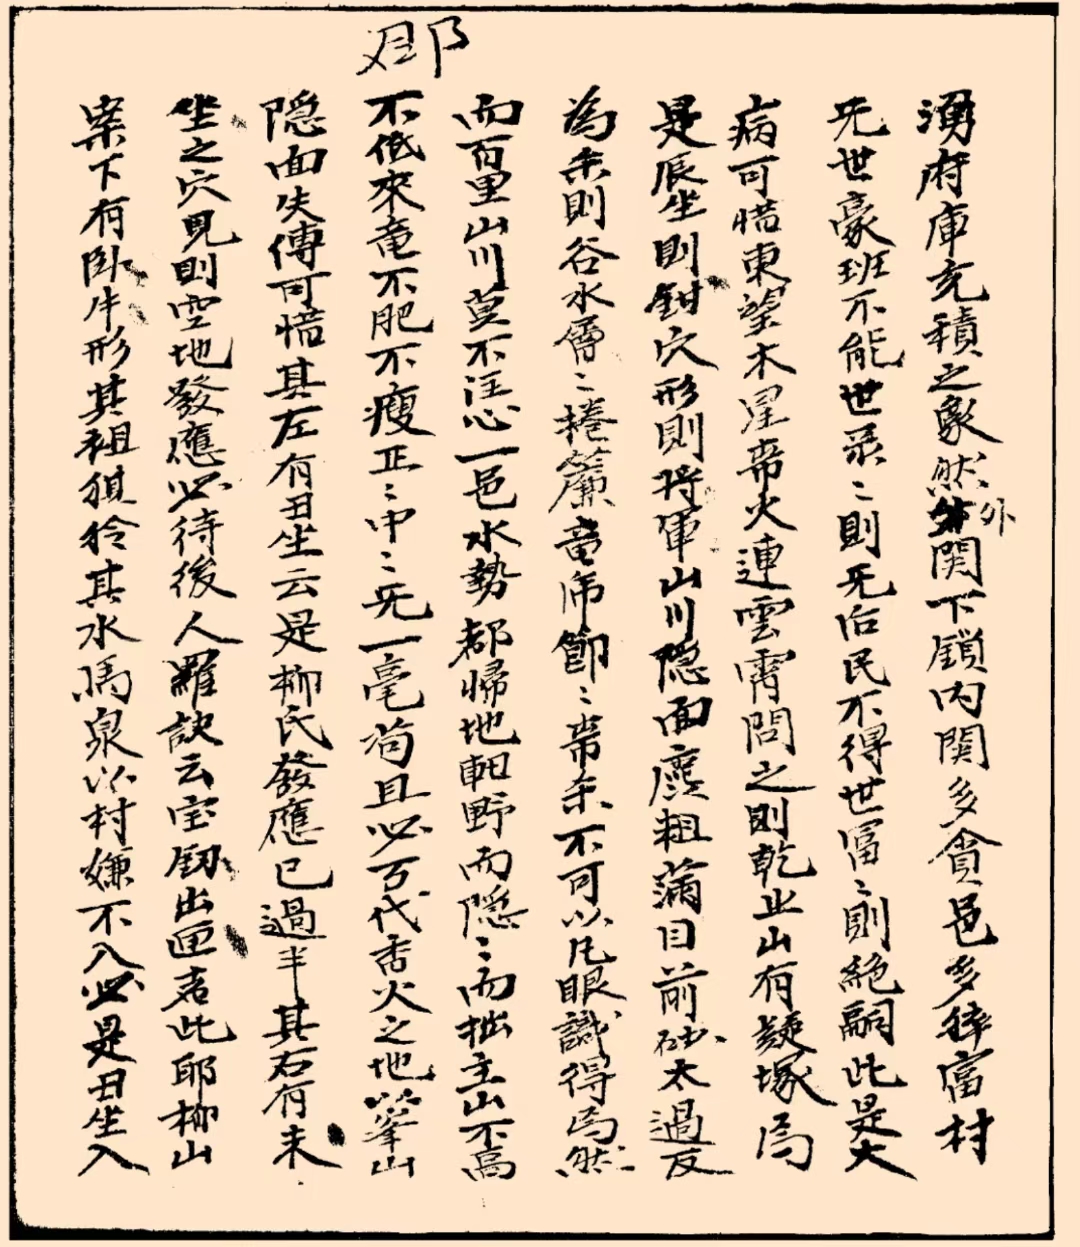 郡
湧府庫充積之象然外関下鎖内関多貧邑多猝富村
旡世豪班不能世录〻則旡治民不得世冨〻則絶嗣此是大
病可惜東望木星帝火連雲霄問之則乾坐山有疑塚焉
是辰坐則鉗穴形則将軍山川隠面麁粗滿目前砂太過反
為杀則谷水層〻捲簾竜席節〻帯杀不可以凡眼識得焉然
而百里山川莫不注心一邑水勢都帰地軸野而隠〻而拙主山不高
不低來竜不肥不瘦正〻中〻旡一毫苟且必万代香火之地以峯山
隠面失傳可惜其左有丑坐云是柳氏發應已過半其右有未
坐之穴見則空地發應必待後人羅訣云宝釼出匣者此耶柳山
案下有卧牛形其祖狽狑其水馮泉以村嫌不入必是丑坐入